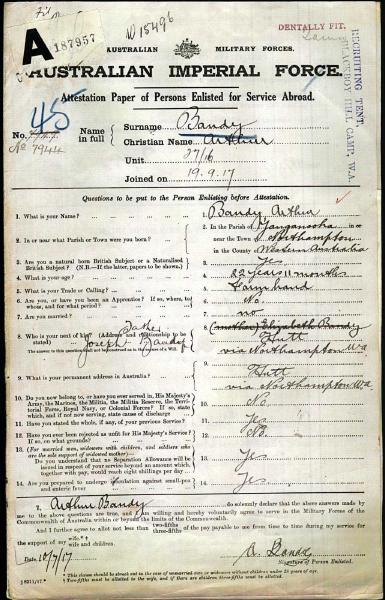 A
187957
N 15496
DENTALLY FIT.
AUSTRALIAN MILITARY FORCES.
AUSTRALIAN IMPERIAL FORCE.
RECRUITING TENT
BLACKBOY HILL CAMP, W.A.
Attestation Paper of Persons Enlisted for Service Abroad.
45
No.
No 7944
Name in full
Surname Bandy
Christian Name Arthur
Unit 27/16
Joined on 19.9.17
Questions to be put to the Person Enlisting before Attestation.
1. What is your Name?
1. Bandy Arthur
2. In or near what Parish or Town were you born?
2. In the Parish of
near the Town of Northampton
in the County of Western Australia
3. Are you a natural born British Subject or a Naturalised British Subject? (N.B.—If the latter, papers to be shown).
3. Yes
4. What is your age?
4. 22 years 11 months
5. What is your Trade or Calling?
5. Farm hand
6. Are you, or have you been an Apprentice? If so, where, to whom, and for what period?
6. No
7. Are you married?
7. no
8. Who is your next of kin? (Address and relationship to be stated)
Father
Joseph Bandy
8. (mother) Elizabeth Bandy
Hutt
via Northampton Wa
9. What is your permanent address in Australia?
9. Hutt
via Northampton Wa
10. Do you now belong to, or have you ever served in, His Majesty's Army, the Marines, the Militia, the Militia Reserve, the Territorial Force, Royal Navy, or Colonial Forces? If so, state which, and if not now serving, state cause of discharge
10. No
11. Have you stated the whole, if any, of your previous Service?
11. Yes
12. Have you ever been rejected as unfit for His Majesty's Service? If so, on what grounds?
12. No
13. (For married men, widowers with children, and soldiers who are the sole support of widowed mother)—
Do you understand that no Separation Allowance will be issued in respect of your service beyond an amount which together with pay, would reach eight shillings per day
13. Yes
14. Are you prepared to undergo inoculation against small-pox and enteric fever
14. Yes
I, Arthur Bandy do solemnly declare that the above answers made by me to the above questions are true, and I am willing and hereby voluntarily agree to serve in the Military Forces of the Commonwealth of Australia within or beyond the limits of the Commonwealth.
And I further agree to allot not less than two-fifths three-fifths of the pay payable to me from time to time during my service for the support of my wife.* wife and children.
Date 10/7/17
A. Bandy
Signature of Person Enlisted.
* This clause should be struck out in the case of unmarried men or widowers without children under 18 years of age.
Two-fifths must be allotted to the wife, and if there are children three-fifths must be allotted.